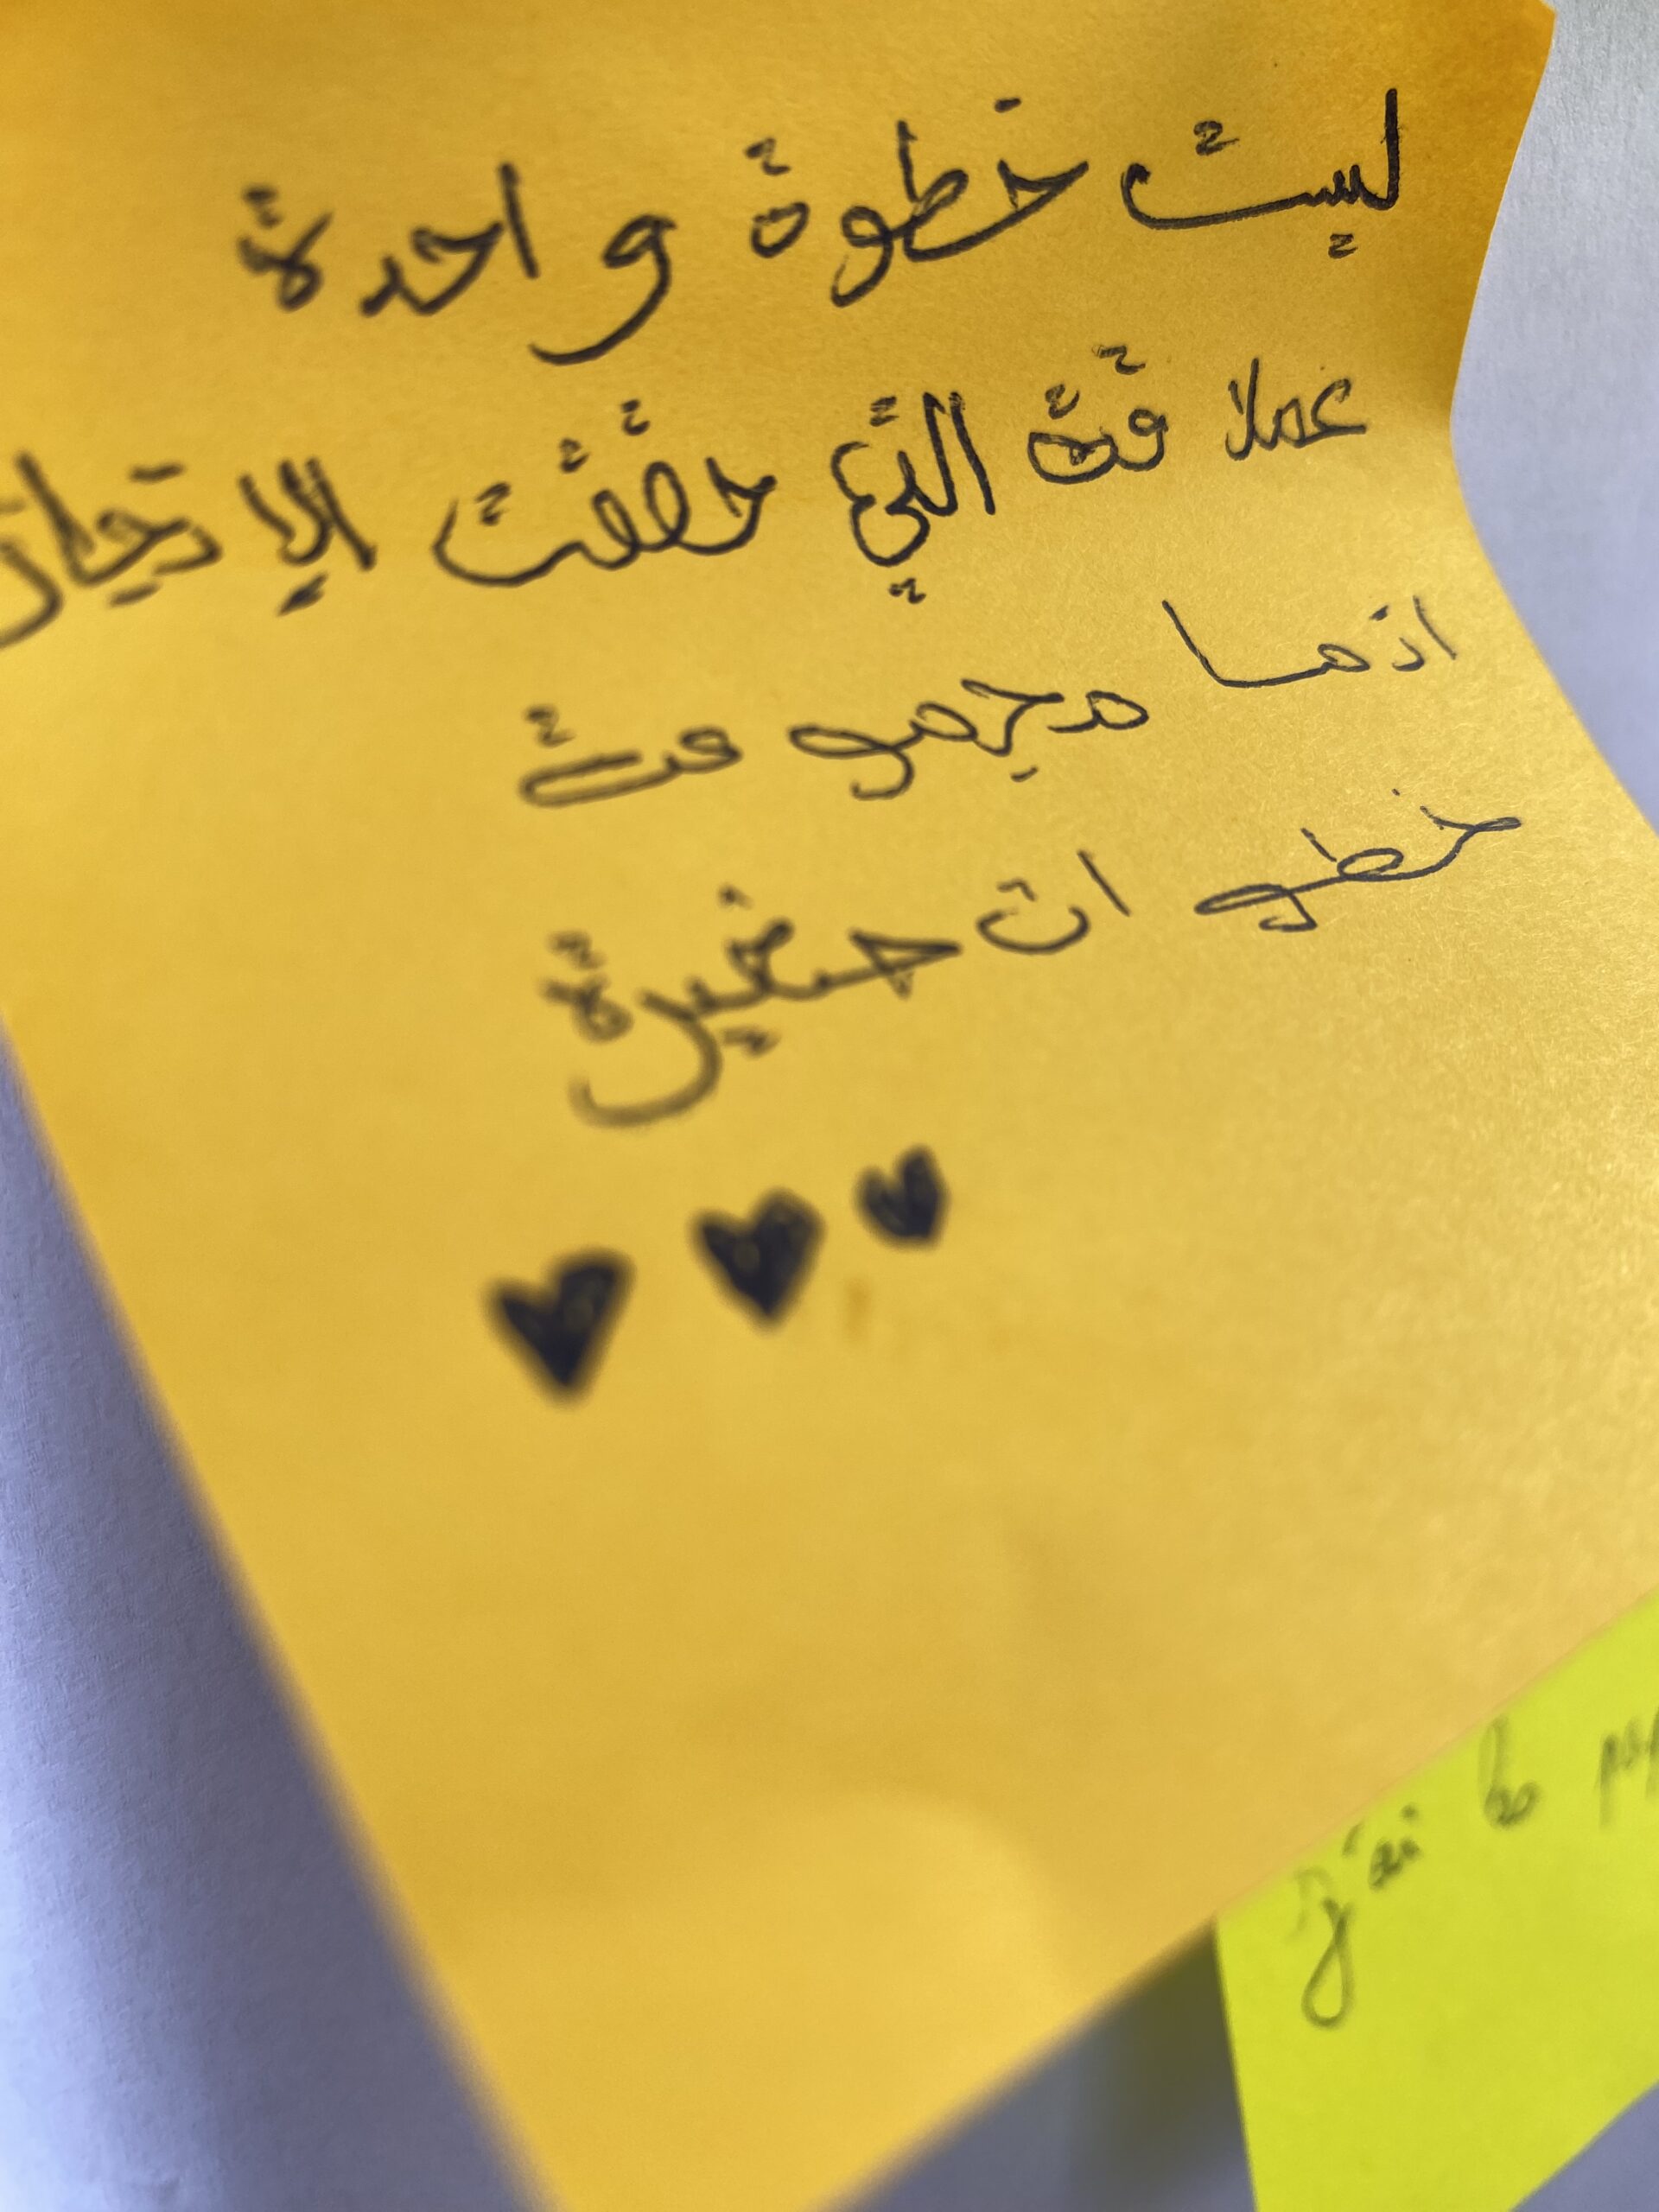 ليست خطوة واحدة
عملاقة التي حققت الإنجاز
انما مجموعة
خطوات صغيرة
J'ai la